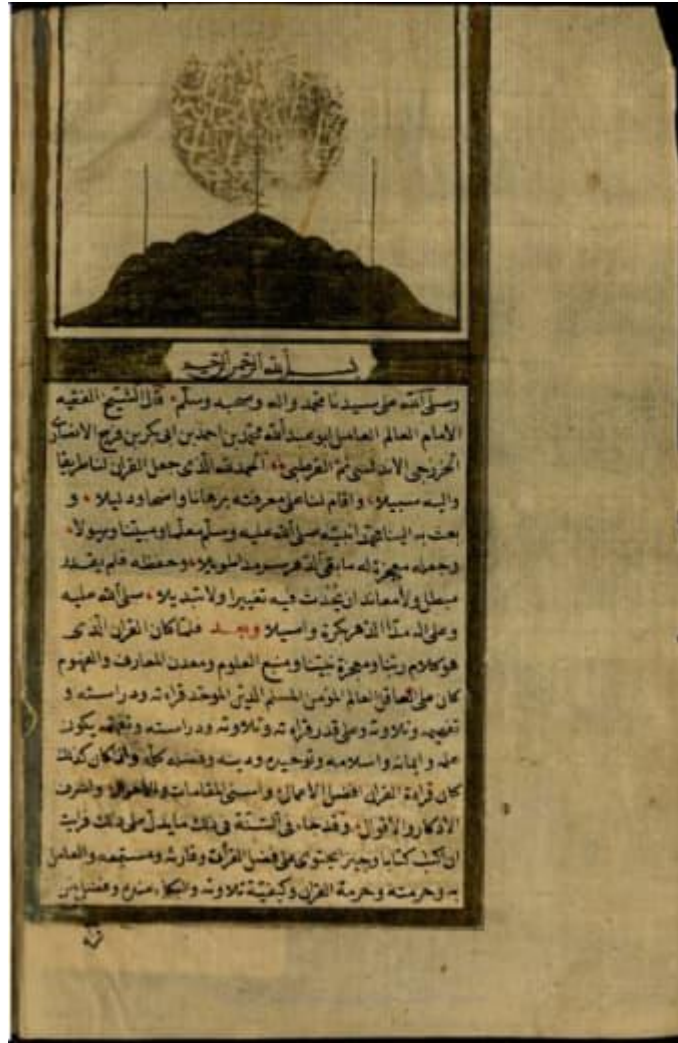 بسم الله الرحمن الرحيم
وصلى الله على سيدنا محمد واله وصحبه وسلم قال الشيخ الفقيه
الامام العالم العامل ابو عبد الله محمد بن احمد بن ابى بكر بن فرج الانصارى
الخزرجى الاندلسى ثم القرطبى الحمد لله الذى جعل القران لنا طريقا
واليه سبيلا واقام لنا على معرفته برهانا واضحا ودليلا و
بعث به الينا محمدا نبيه صلى الله عليه وسلم معلما ومبينا ورسولا
وجعله معجزة له ما بقى الدهر سرمدا طويلا وحفظه فلم يقدر
مبطل ولا معاند ان يحدث فيه تغييرا ولا تبديلا صلى الله عليه
وعلى اله مدا الدهر بكرة واصيلا وبعد فلما كان القران الذى
هو كلام ربنا ومعجزة نبينا ومنبع العلوم ومعدن المعارف والفهوم
كان على العاقل العالم المؤمن المسلم الدين الموحد قراءته ودراسته و
تفهمه وتلاوته وعلى قدر قراءته وتلاوته ودراسته وتفهمه يكون
علمه وايمانه واسلامه وتوحيده ودينه وفضله كله ولما كان كذلك
كان قراءة القران افضل الاعمال واسنى المقامات والاحوال واشرف
الاذكار والاقوال وقد جاء فى السنة فى ذلك ما يدل على ذلك فرايت
ان اكتب كتابا وجيزا يحتوى على فضل القران وقارئه ومستمعه والعامل
به وحرمته وحرمة القران وكيفية تلاوته والبكاء عنده وفضل من